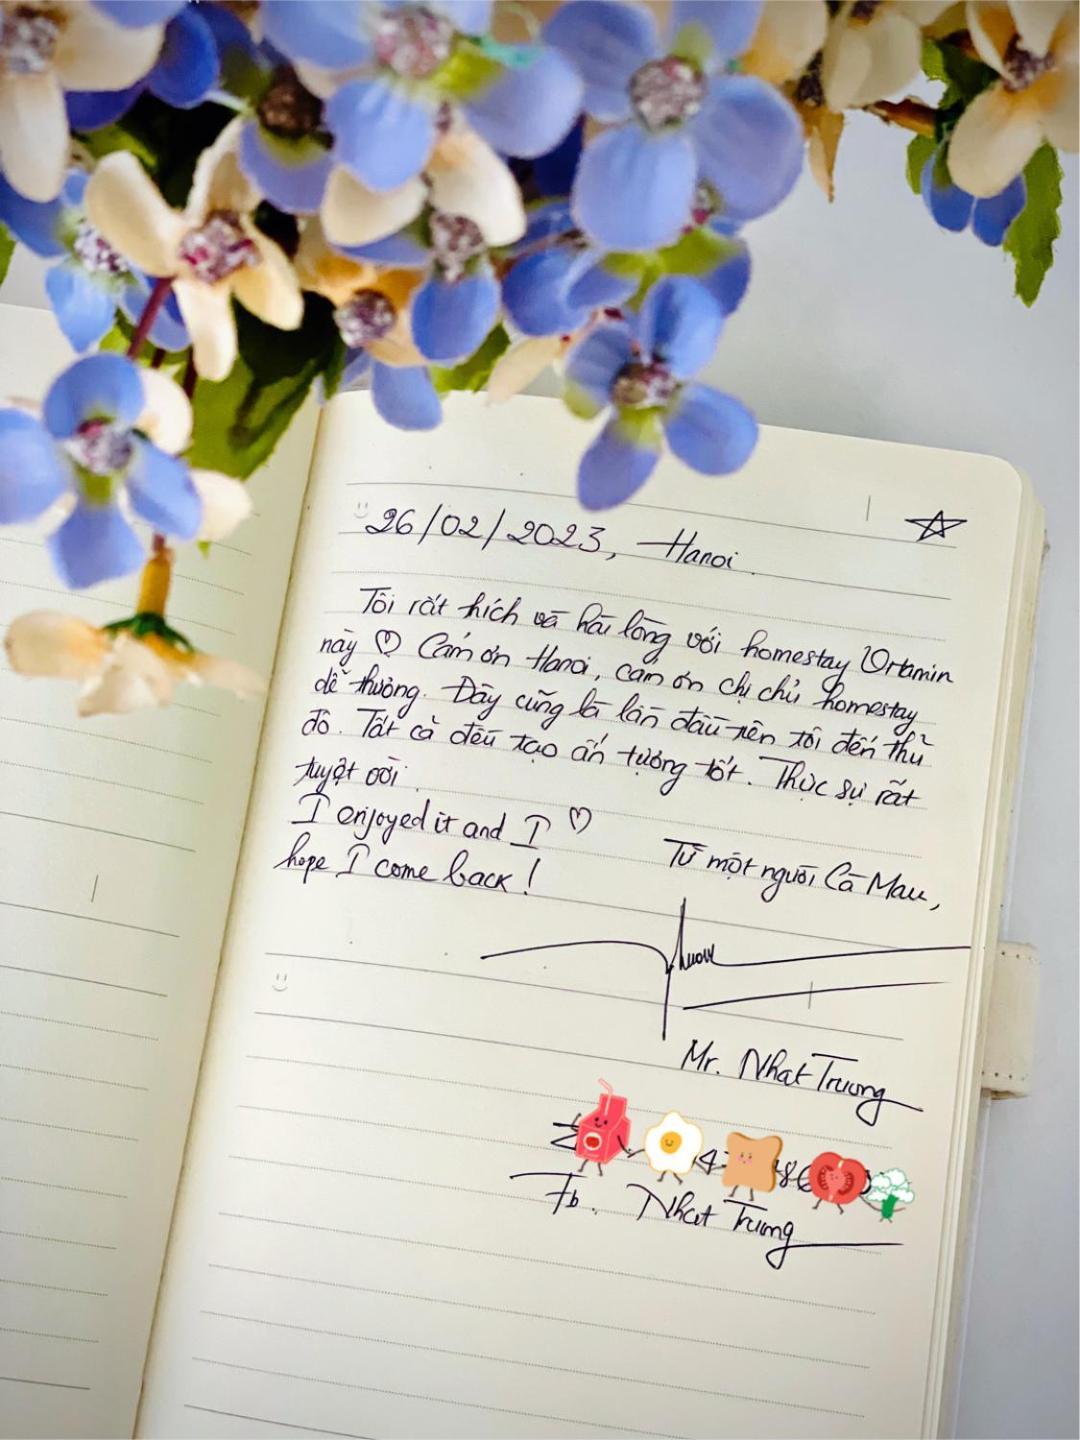 26/02/2023, Hanoi
Tôi rất thích và hài lòng với homestay
này ♡ Cảm ơn Hanoi, cảm ơn chị chủ homestay
dễ thương. Đây cũng là lần đầu tiên tôi đến thủ
đô. Tất cả đều tạo ấn tượng tốt. Thực sự rất
tuyệt vời.
I enjoyed it and I ♡
hope I come back!
Từ một người Cà Mau,
Mr. Nhat Truong
Fb. Nhat Truong